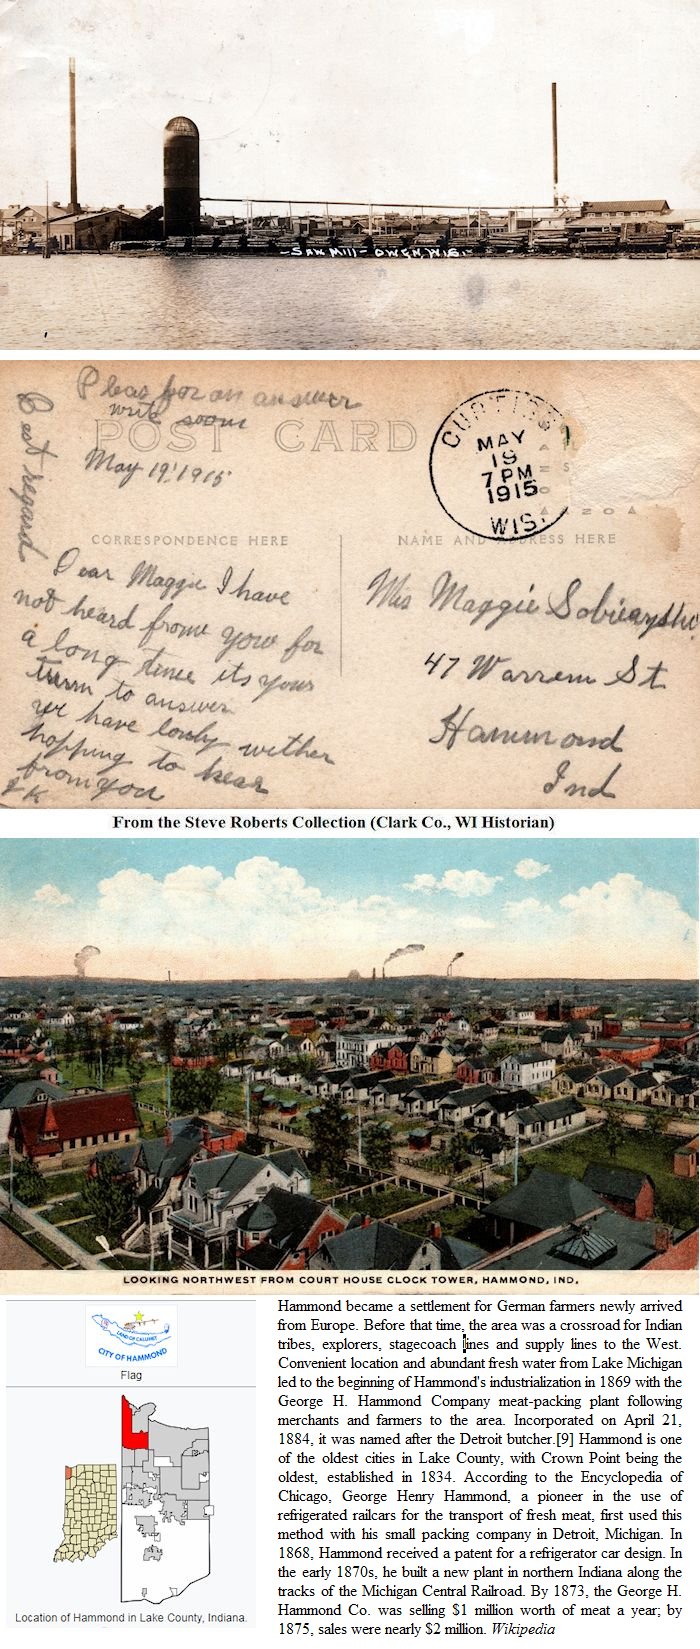 -SAW MILL- OWEN, WIS.-
Pleas for an answer
write soon
Best regard
POST CARD
May 19' 1915
CURTISS
MAY
19
7 PM
1915
WIS.
CORRESPONDENCE HERE
NAME AND ADDRESS HERE
Dear Maggie I have
not heard frome yow for
a long time its your
turrn to answer
we have lowly wether
hopping to hear
from you
Mis Maggie
47 Warren St
Hammond
Ind
From the Steve Roberts Collection (Clark Co., WI Historian)
LOOKING NORTHWEST FROM COURT HOUSE CLOCK TOWER, HAMMOND, IND.
LAND OF CALUMET
CITY OF HAMMOND
Flag
Location of Hammond in Lake County, Indiana.
Hammond became a settlement for German farmers newly arrived
from Europe. Before that time, the area was a crossroad for Indian
tribes, explorers, stagecoach lines and supply lines to the West.
Convenient location and abundant fresh water from Lake Michigan
led to the beginning of Hammond's industrialization in 1869 with the
George H. Hammond Company meat-packing plant following
merchants and farmers to the area. Incorporated on April 21,
1884, it was named after the Detroit butcher.[9] Hammond is one
of the oldest cities in Lake County, with Crown Point being the
oldest, established in 1834. According to the Encyclopedia of
Chicago, George Henry Hammond, a pioneer in the use of
refrigerated railcars for the transport of fresh meat, first used this
method with his small packing company in Detroit, Michigan. In
1868, Hammond received a patent for a refrigerator car design. In
the early 1870s, he built a new plant in northern Indiana along the
tracks of the Michigan Central Railroad. By 1873, the George H.
Hammond Co. was selling $1 million worth of meat a year; by
1875, sales were nearly $2 million. Wikipedia